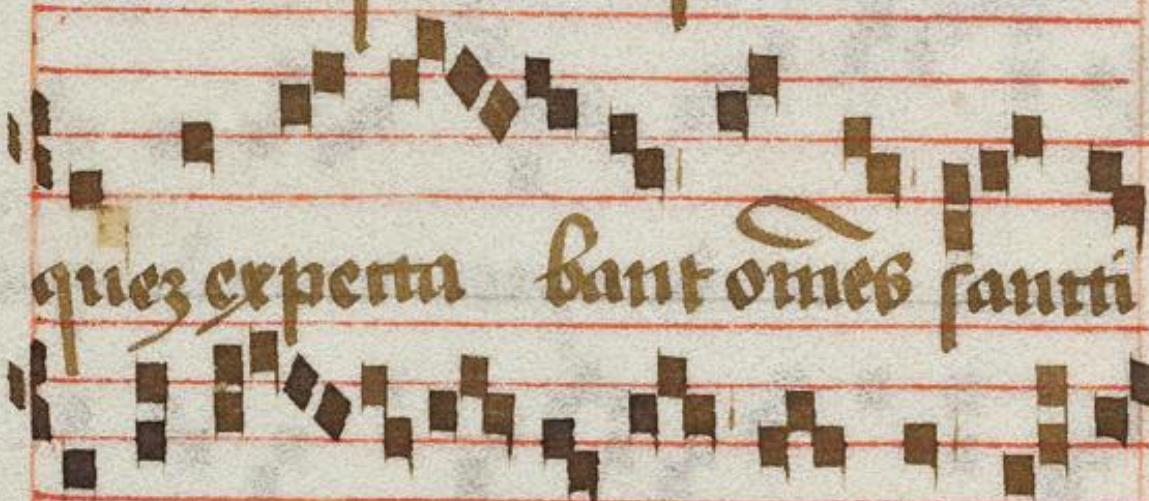 quez expecta bant om̅es sancti